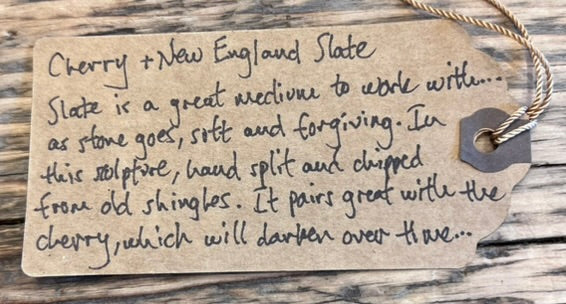 Cherry + New England Slate
Slate is a great medium to work with...
as stone goes, soft and forgiving. In
this sculpture, hand split and chipped
from old shingles. It pairs great with the
cherry, which will darken over time...